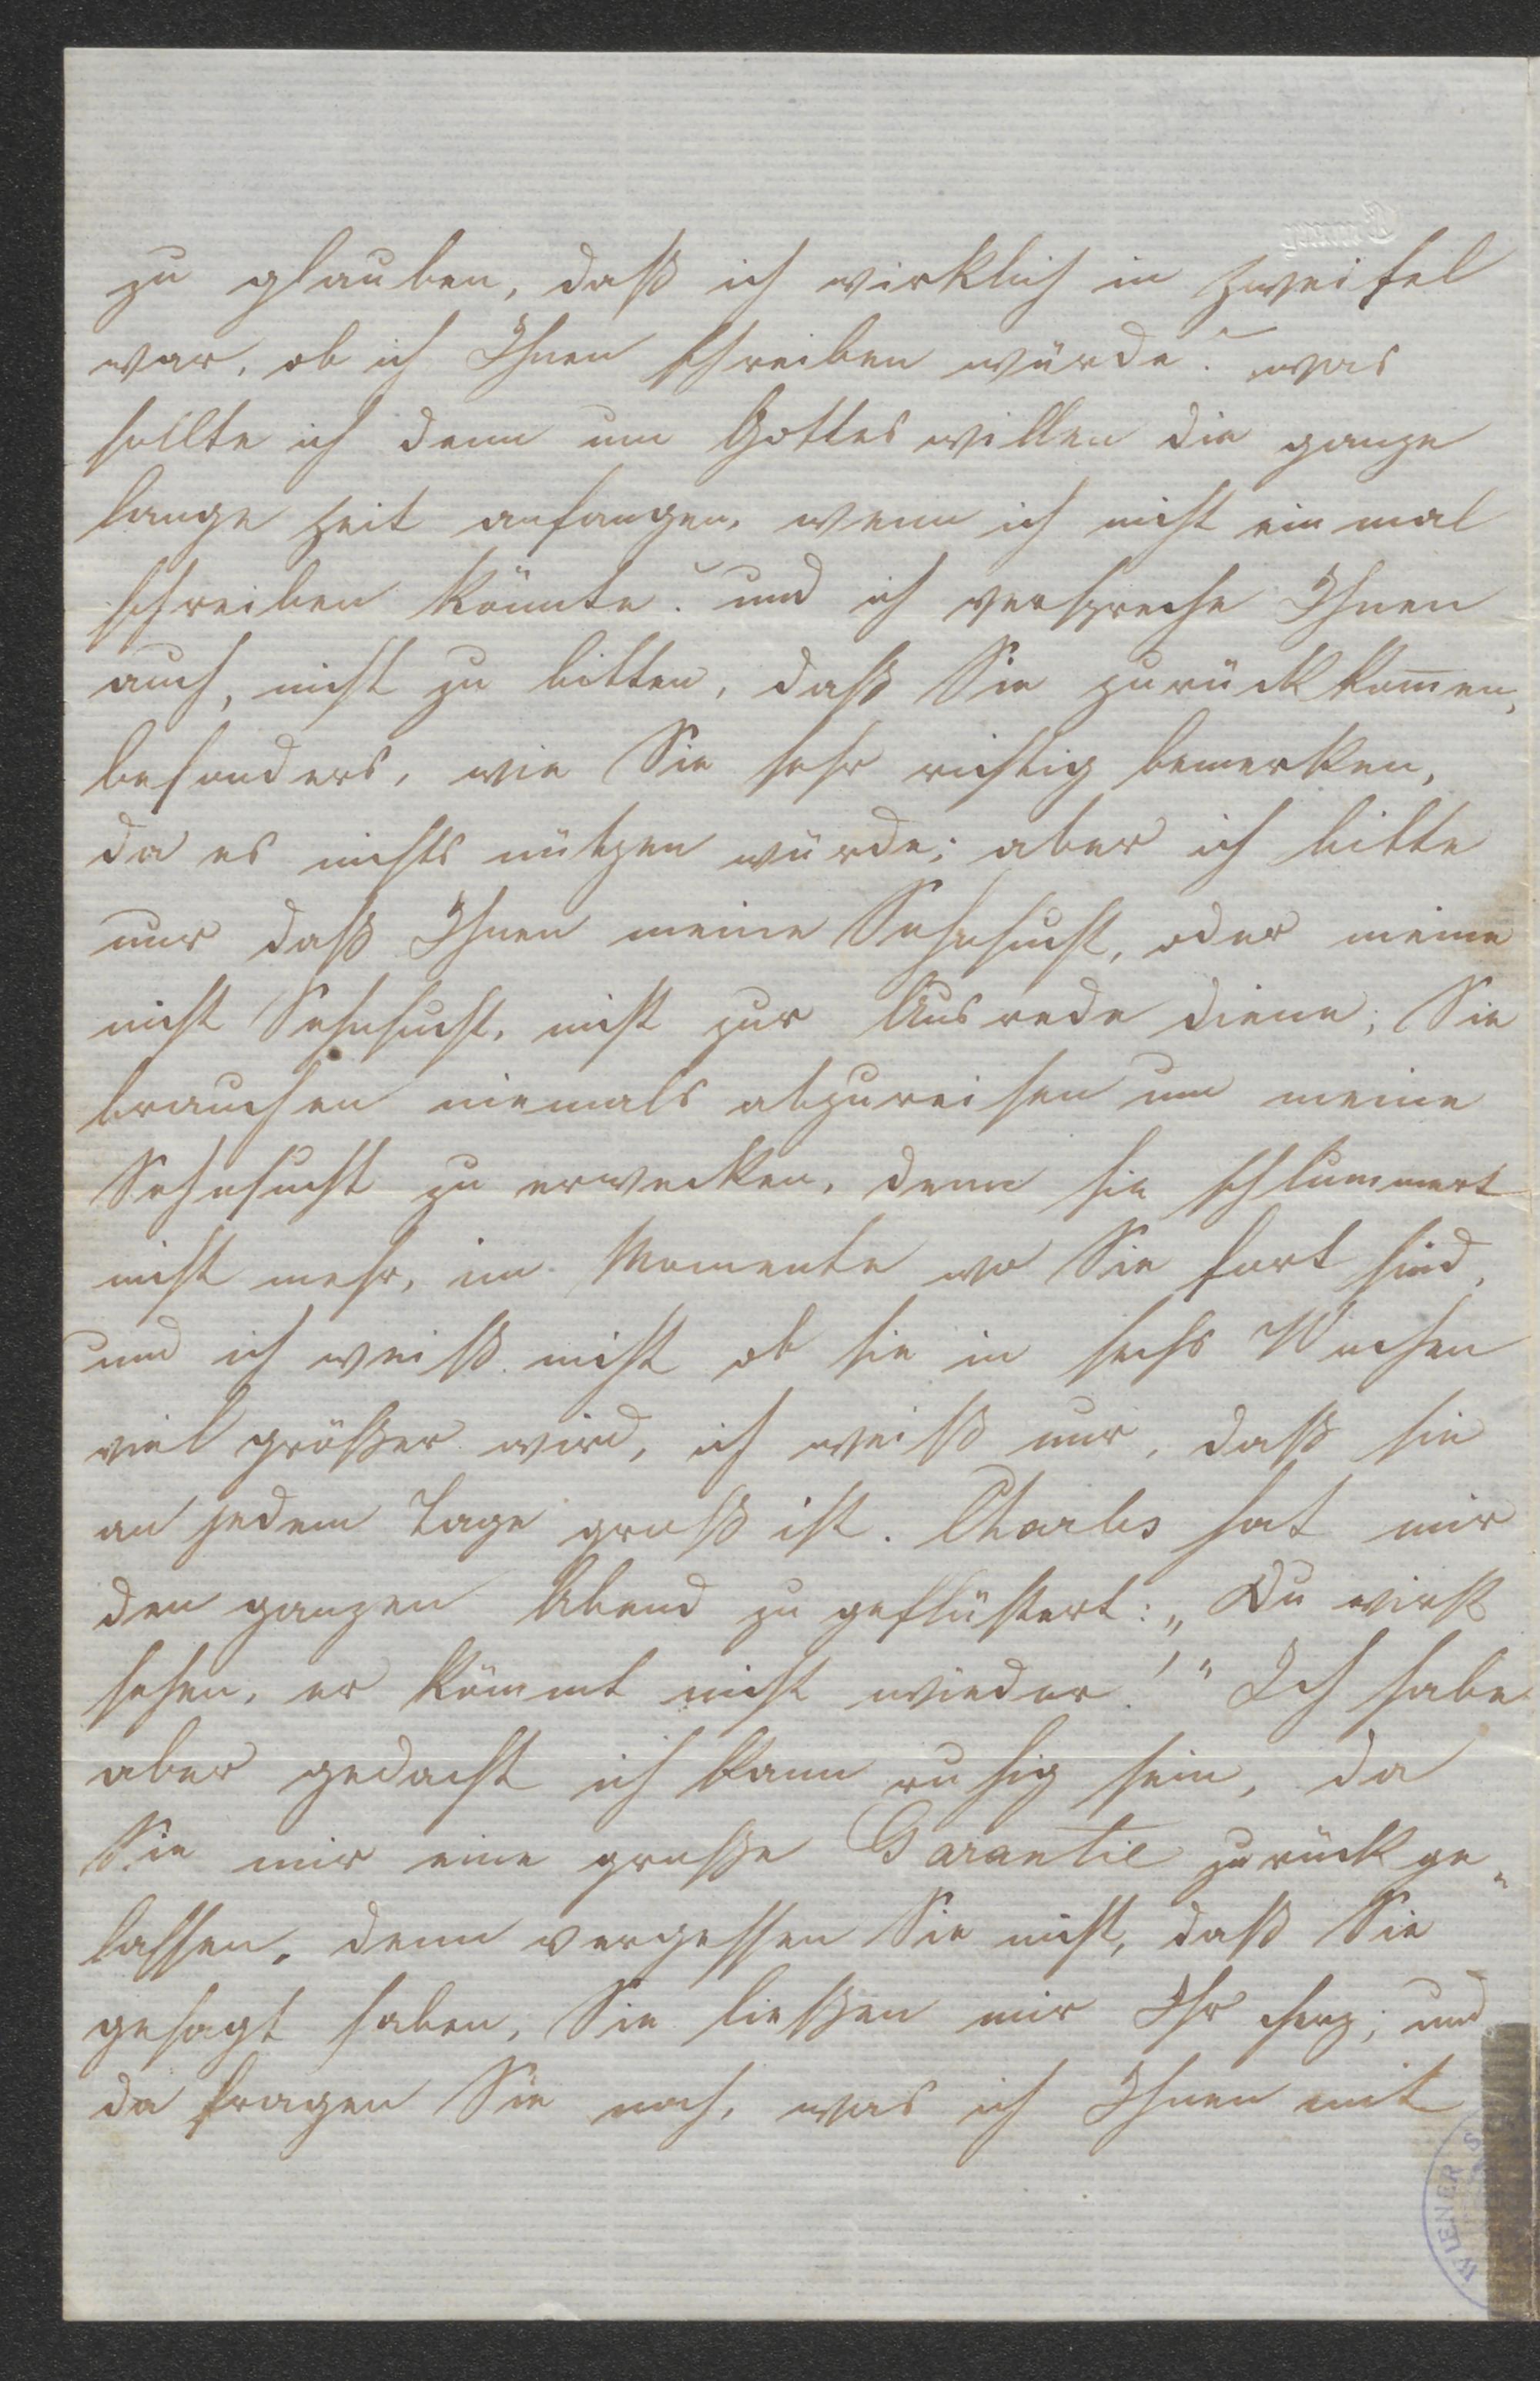 zu glauben, daß ich wirklich in Zweifel
war, ob ich Ihnen schreiben würde? was
sollte ich denn um Gottes willen die ganze
lange Zeit anfangen, wenn ich nicht ein mal
schreiben könnte? und ich verspreche Ihnen
auch, nicht zu bitten, daß Sie zurückkom̅en,
besonders, wie Sie sehr richtig bemerken,
da es nichts nützen würde; aber ich bitte
nur daß Ihnen meine Sehnsucht, oder meine
nicht Sehnsucht, nicht zur Ausrede diene; Sie
brauchen niemals abzureisen um meine
Sehnsucht zu erwecken, denn sie schlummert
nicht mehr, im Momente wo Sie fort sind,
und ich weiß nicht ob sie in sechs Wochen
viel größer wird, ich weiß nur, daß sie
an jedem Tage groß ist. Charles hat mir
den ganzen Abend zu geflüstert: „Du wirst
sehen, er kömmt nicht wieder!" Ich habe
aber gedacht ich kann ruhig sein, da
Sie mir eine große Garantie zurück ge„
lassen, denn vergessen Sie nicht, daß Sie
gesagt haben, Sie ließen mir Ihr Herz; und
da fragen Sie noch, was ich Ihnen mit
WIENER S